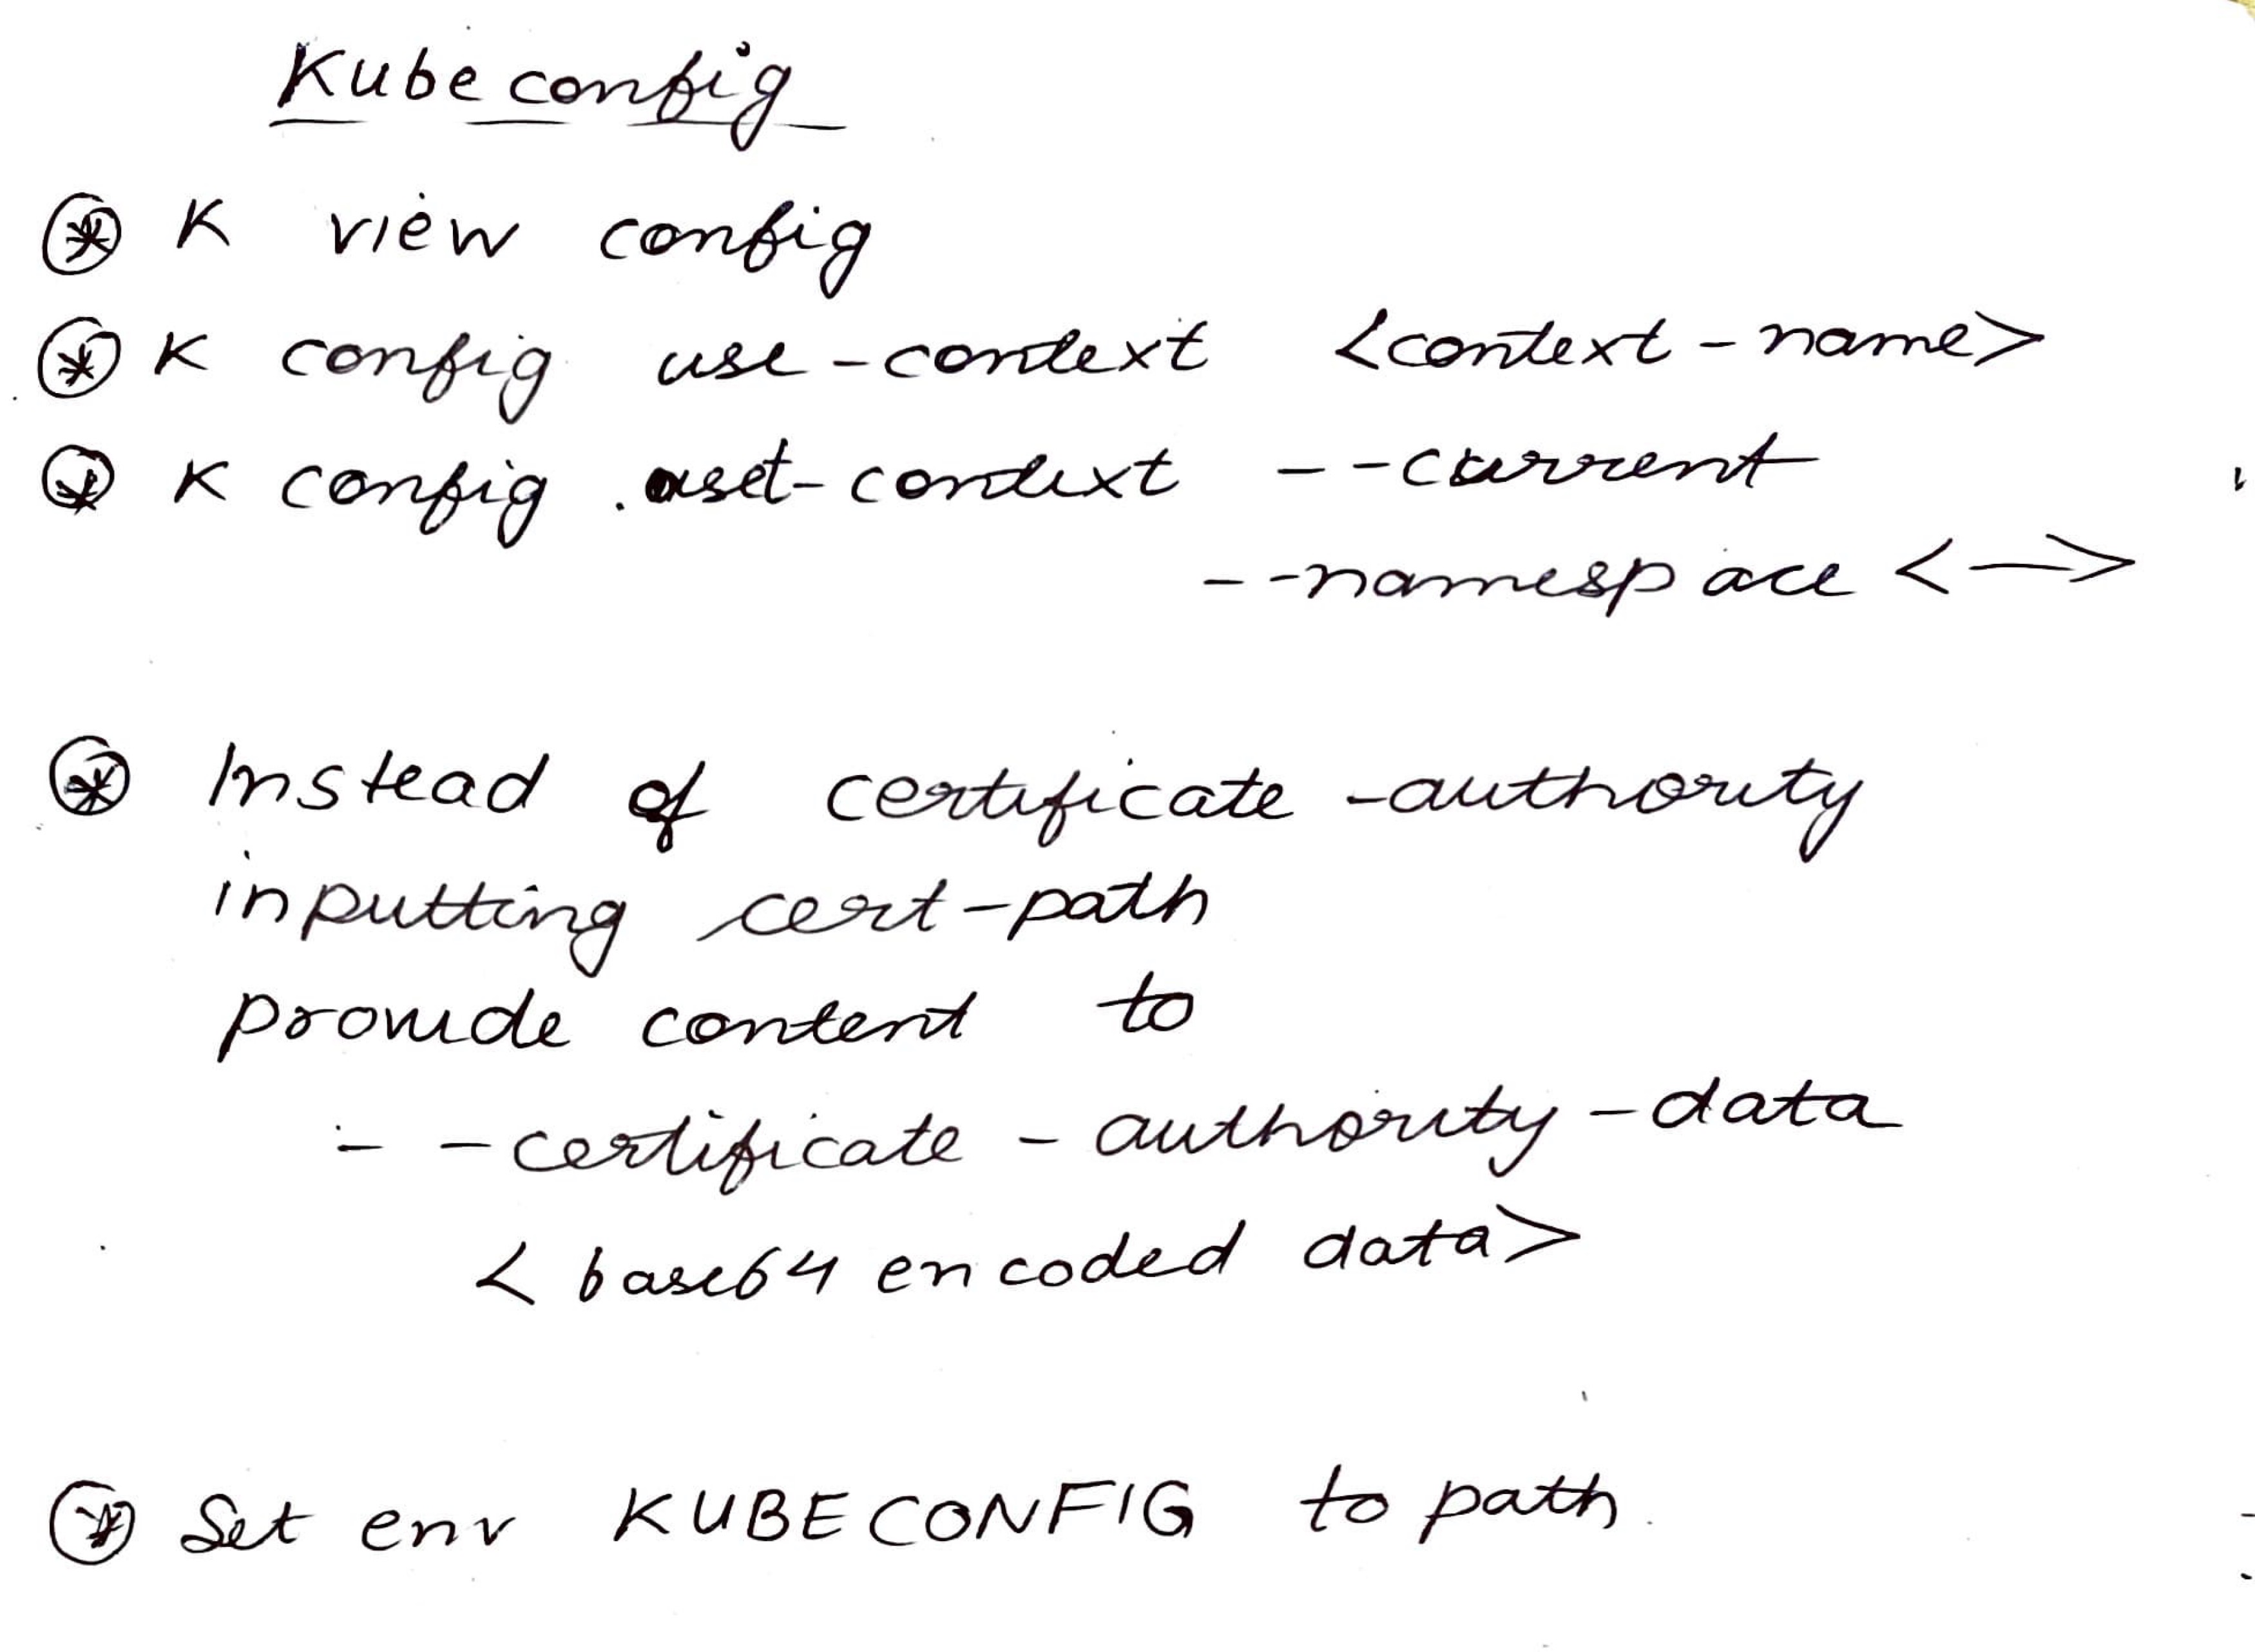 Kubeconfig
* K view config
* K config use-context <context-name>
* K config set-context --current
--namespace <->
* Instead of certificate-authority
inputting cert-path
provide content to
--certificate-authority-data
<base64 encoded data>
* Set env KUBECONFIG to path.